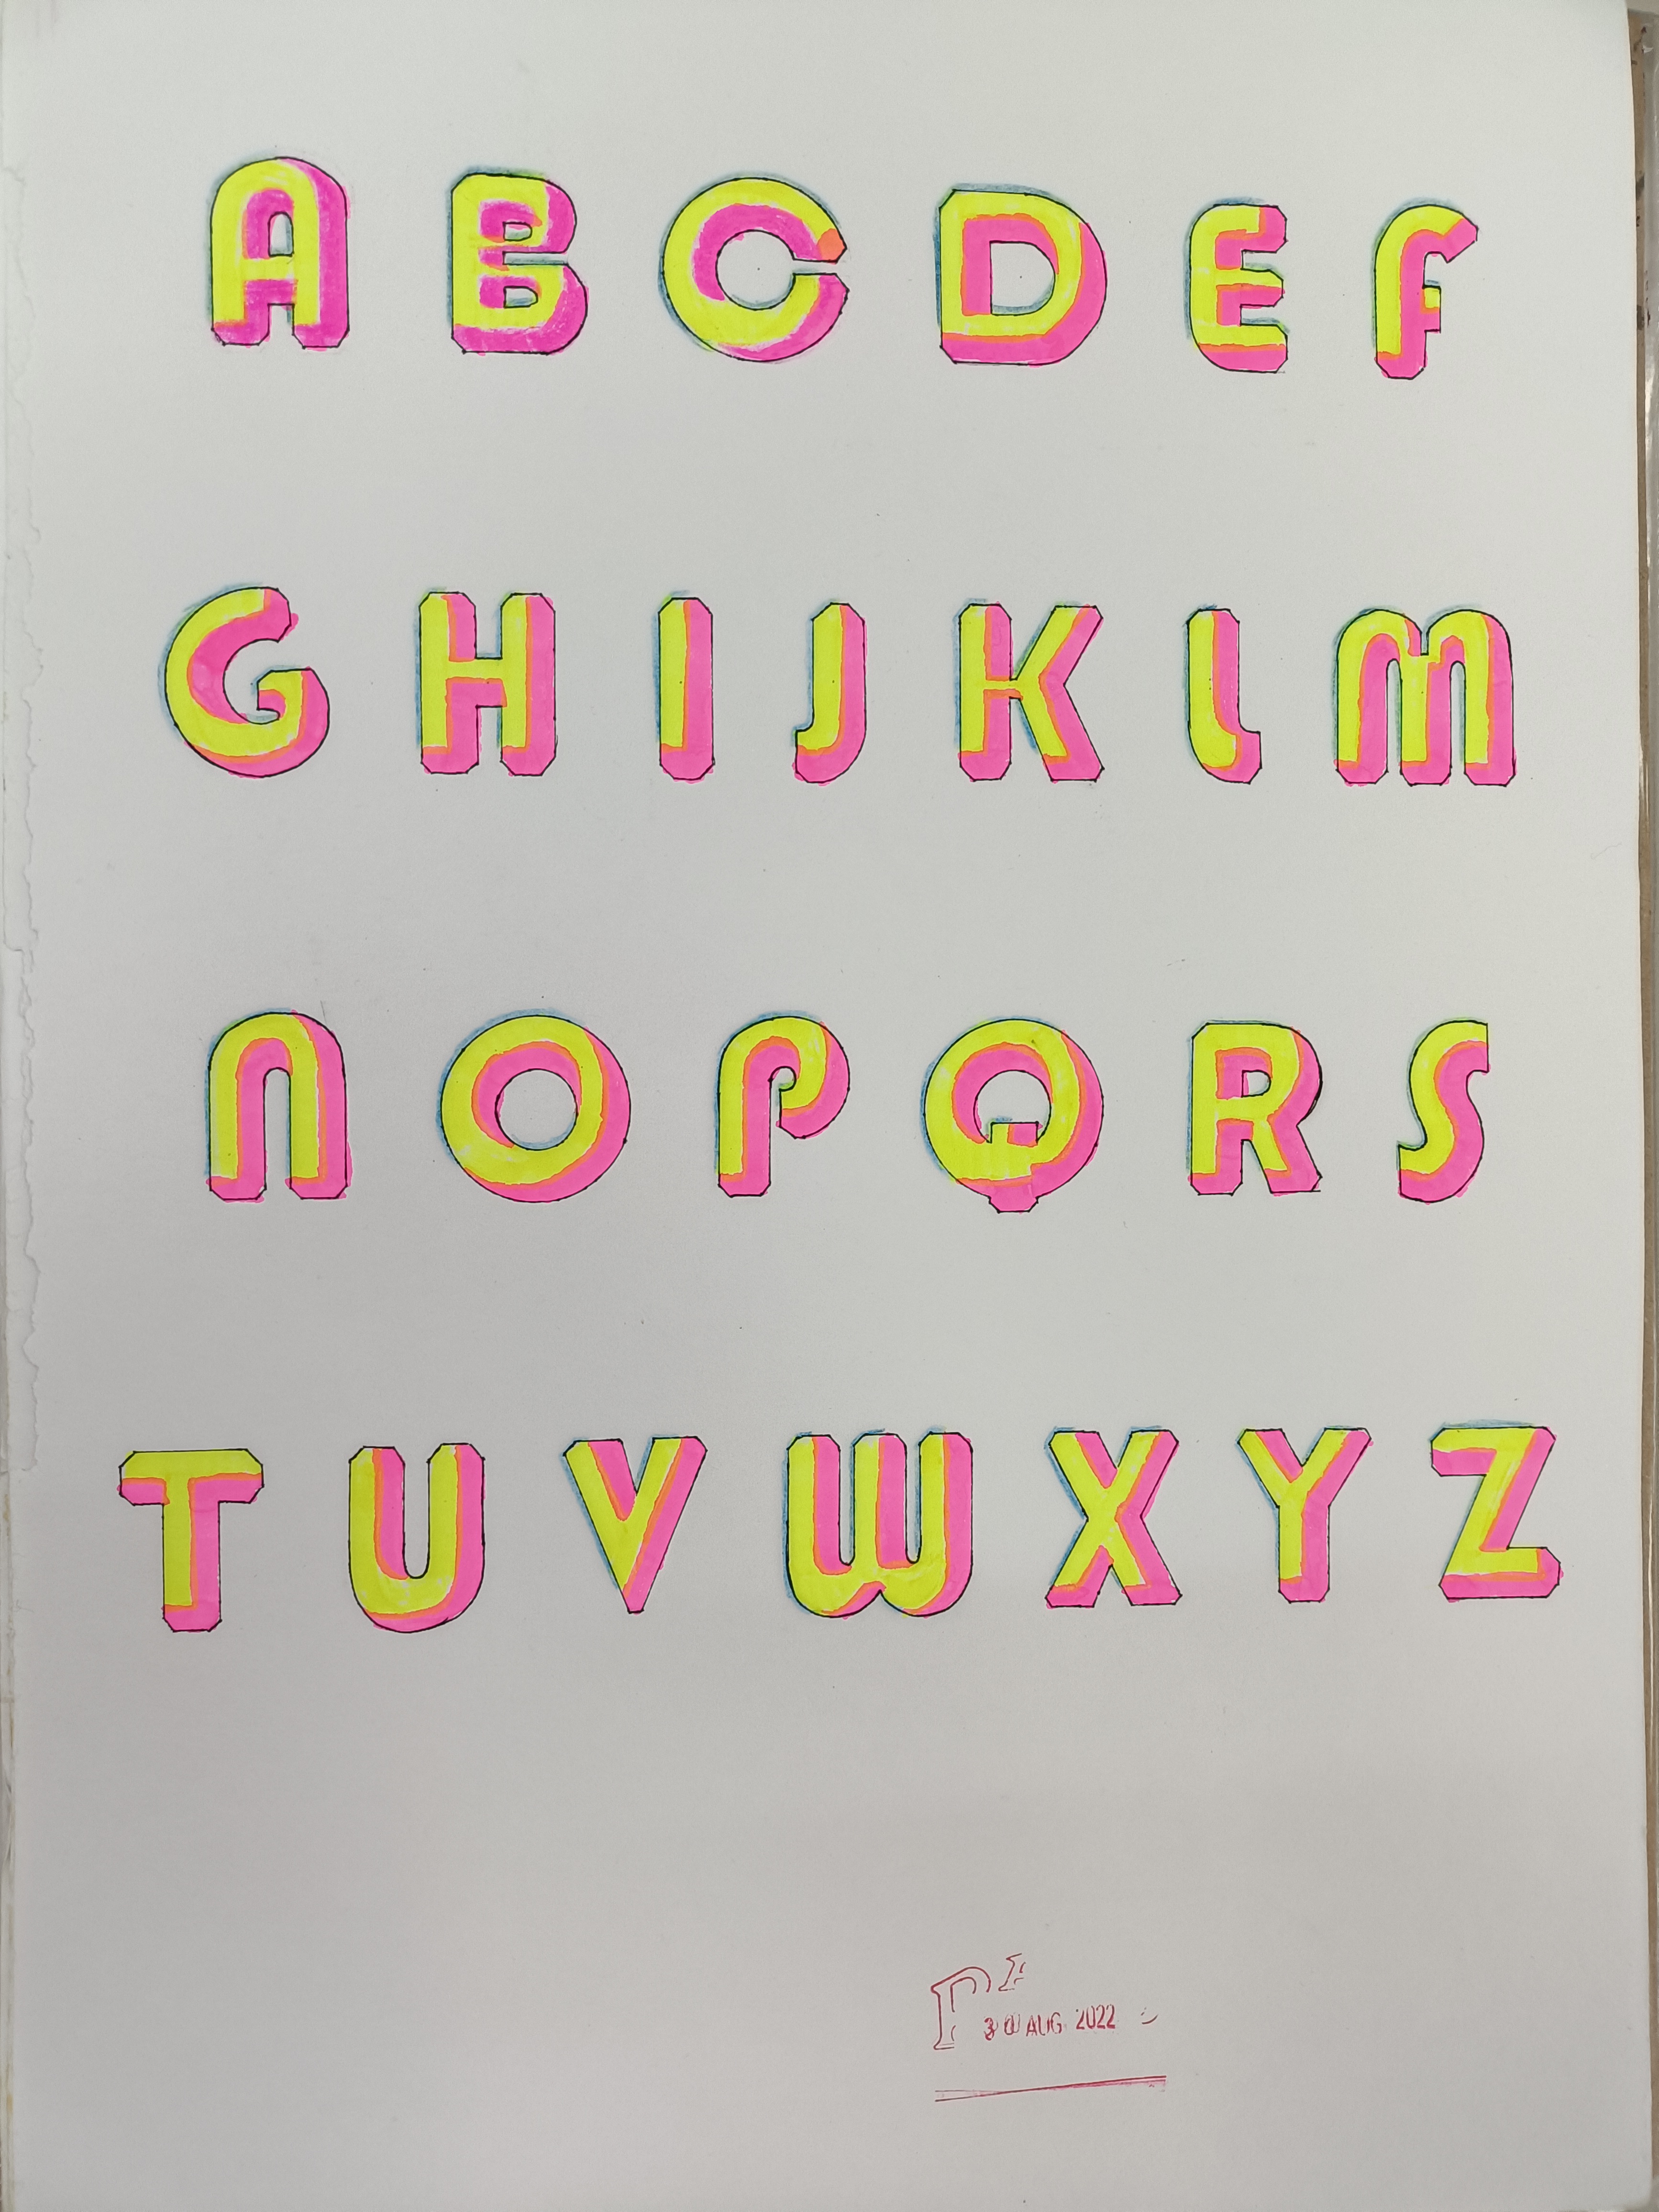 A B C D E F
G H I J K L M
N O P Q R S
T U V W X Y Z
30 AUG 2022